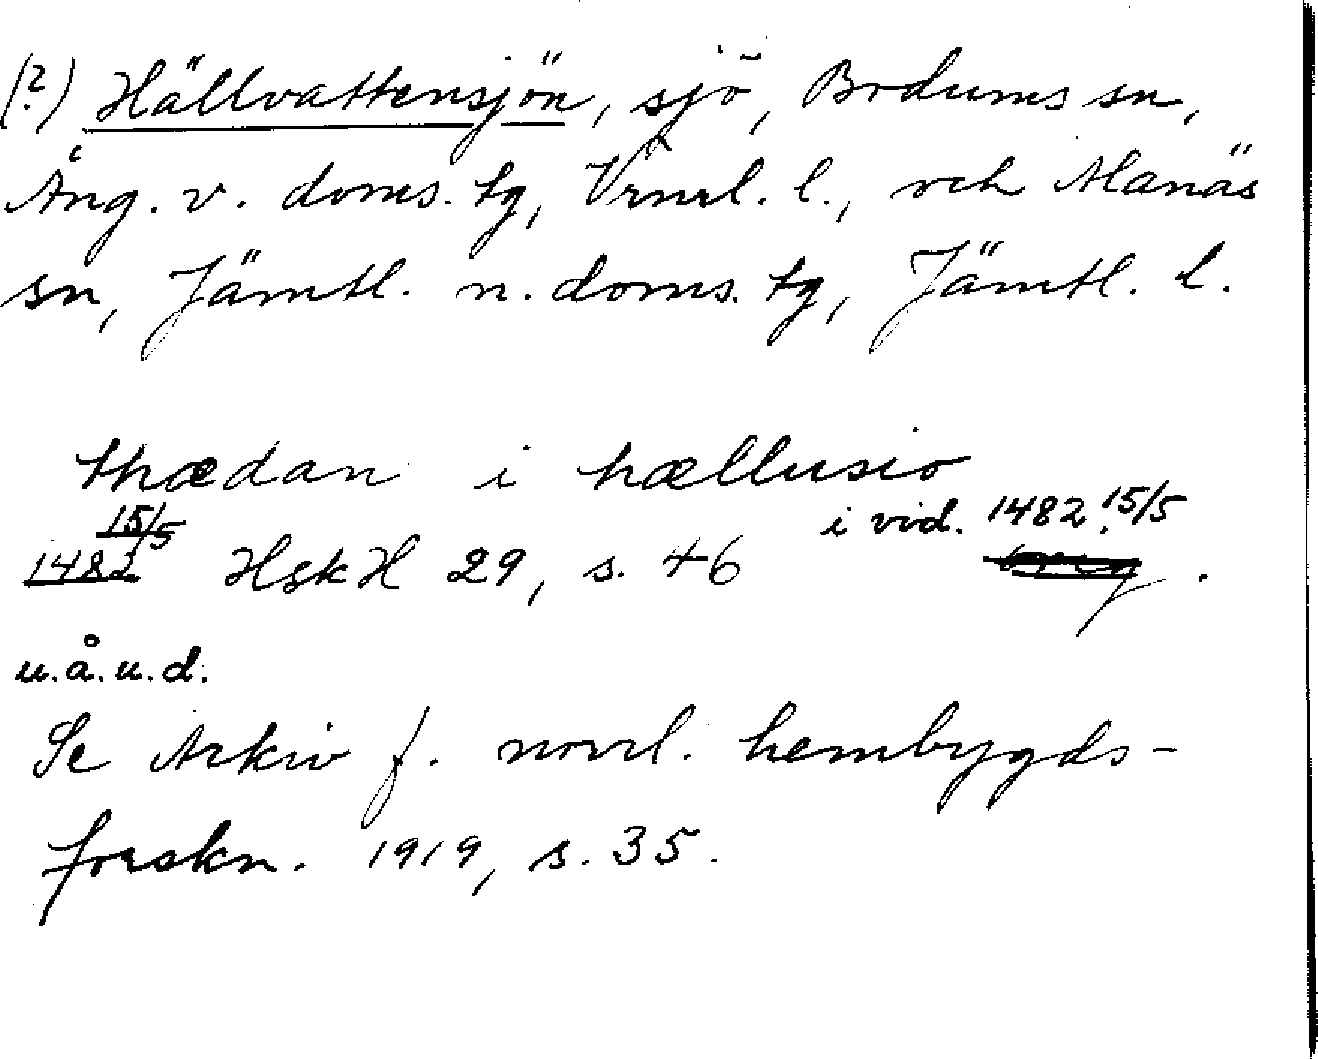 (?) Hällvattensjön, sjö, Bodums sn,
Ång. v. doms. tg, Vrnrl. l., och Alanäs
sn, Jämtl. n. doms. tg, Jämtl. l.
thædan i hællusio
15/5 i vid. 1482 15/5
1482 HskH 29, s. 46 .
u.å.u.d.
Se Arkiv f. norrl. hembygds-
forskn. 1919, s. 35.